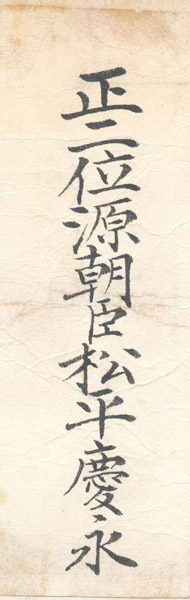 正二位源朝臣松平慶永